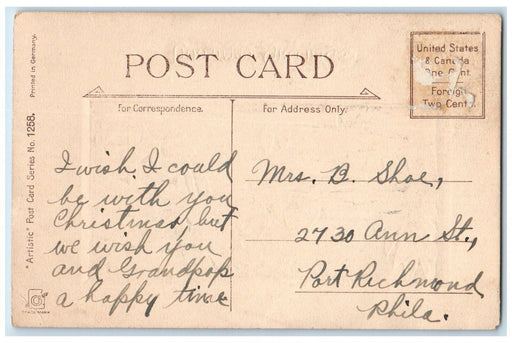 POST CARD
United States
& Canada
One Cent.
Foreign
Two Cents.
For Correspondence.
For Address Only.
I wish I could
be with you
Christmas, but
we wish you
and Grandpop
a happy time
Mrs. B. Shoe,
2730 Ann St.,
Port Richmond
Phila.
"Artistic" Post Card Series No. 1258.
Printed in Germany.
TRADE MARK